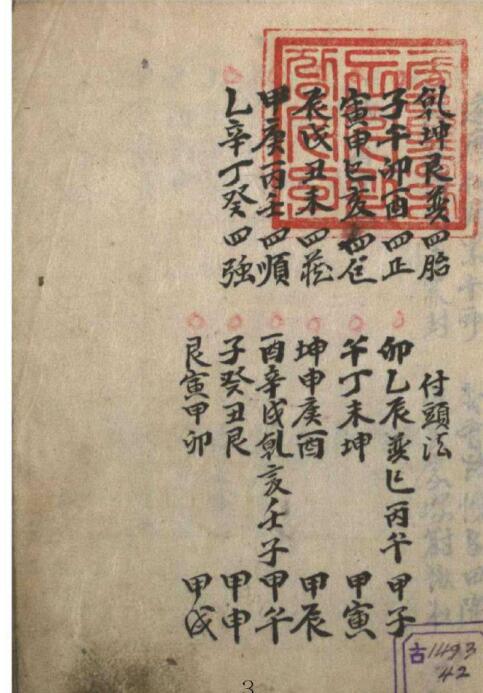 乾坤艮巽四胎
子午卯酉四正
寅申巳亥四
辰戌丑未四
甲庚丙壬四順
乙辛丁癸四強
付頭法
卯乙辰巽巳丙午 甲子
午丁未坤 甲寅
坤申庚酉 甲辰
酉辛戌乾亥壬子 甲午
子癸丑艮 甲申
艮寅甲卯 甲戌
古1493
42
3